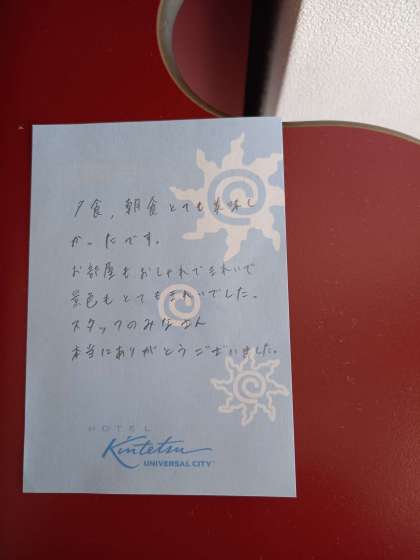 夕食，朝食とても美味し
かったです。
お部屋もおしゃれできれいで
景色もとてもきれいでした。
スタッフのみなさん
本当にありがとうございました。
HOTEL
Kintetsu
UNIVERSAL CITY™